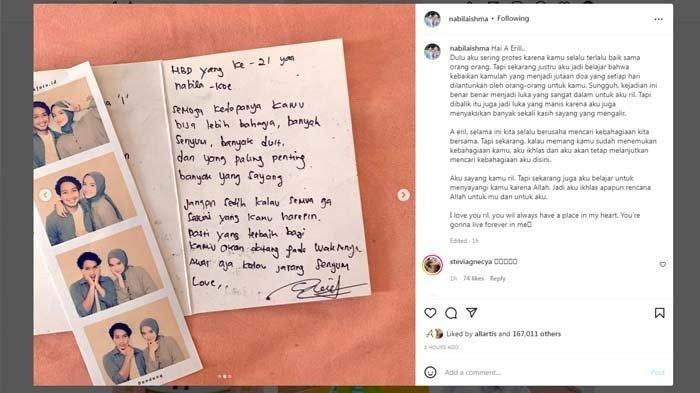 nabilaishma • Following
HBD yang ke-21 yaa
nabila-koe
Semoga kedepanya kamu
bisa lebih bahagia, banyak
senyum, banyak duit,
dan yang paling penting
banyak yang sayang
Jangan sedih kalau semua ga
sesuai yang kamu harepin.
Pasti yang terbaik bagi
kamu akan datang pada waktunya
Awas aja kalau jarang senyum
Love,,
Bandung
nabilaishma Hai A Erill..
Dulu aku sering protes karena kamu selalu terlalu baik sama
orang orang. Tapi sekarang justru aku jadi belajar bahwa
kebaikan kamulah yang menjadi jutaan doa yang setiap hari
dilantunkan oleh orang-orang untuk kamu. Sungguh, kejadian ini
benar benar menjadi luka yang sangat dalam untuk aku ril. Tapi
dibalik itu juga jadi luka yang manis karena aku juga
menyaksikan banyak sekali kasih sayang yang mengalir.
A eril, selama ini kita selalu berusaha mencari kebahagiaan kita
bersama. Tapi sekarang, kalau memang kamu sudah menemukan
kebahagiaan kamu, aku ikhlas dan aku akan tetap melanjutkan
mencari kebahagiaan aku disini.
Aku sayang kamu ril. Tapi sekarang juga aku belajar untuk
menyayangi kamu karena Allah. Jadi aku ikhlas apapun rencana
Allah untuk mu dan untuk aku.
I love you ril, you wil always have a place in my heart. You're
gonna live forever in me
Edited · 1h
steviagnecya
1h 74 likes Reply
Liked by allartis and 167,011 others
2 HOURS AGO
Add a comment...
Post